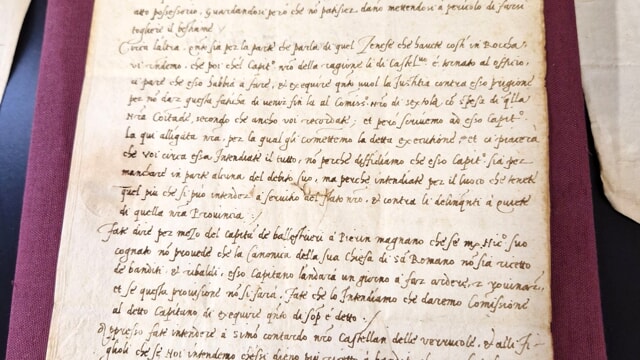 atto possessorio, Guardandosi però che nō patisiez dano mettendosi à pericolo di farsi
togliere il bestiame.
Circa l'altra, ansia per la parte che parla di quel Zenese che haveti costì in Roccha
vi rendemo, che poi che'l Capitº nrō della ragione lì di Castelnº è tornato al officio,
ci pare che esso habbia à fare, et exequire qnto vuol la Justitia contra esso prigione
per nō dar questa faticha di venir fin lì al Comissº nrō di sextola, cō spesa di qlla
nrā Cōitade, secondo che ancho voi recordate; et però scrivemo ad esso Capitº
la qui alligata nrā, per la qual gli comettemo la detta executione, et ci piacerà
che voi circa essa Intendiate il tutto, nō perche diffidiamo che esso Capitº sia per
manchare in parte alcuna del debito suo, ma perche intendiate per il luoco che tenete
quel più che si può intender à servitio del stato nrō, et contra li delinqnti à quiete
di quella nrā Provincia.
Fate dire per mezo del capitº de ballestrieri à Pierin magnano che se mr Nicº suo
cognato nō provede che la Canonica della sua Chiesa di Sā Romano nō sia ricetto
de banditi et ribaldi, esso Capitano l'andarà un giorno à far ardere, et rovinare,
et se questa provisione nō si farà, Fate che lo Intendiamo che daremo Comissione
al detto Capitano di exequire qnto di sopª è detto.
Appresso fate intendere à Simō contardo nrō Castellan delle verrucole, et alli Fi-
glioli che se Noi intendemo che si diano più ricetto à banditi